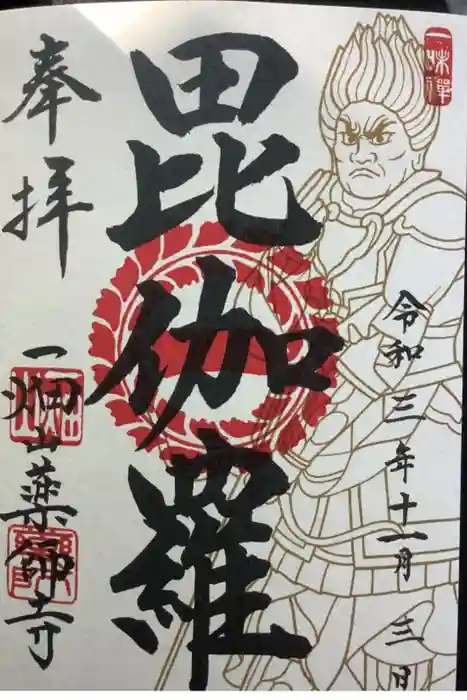 一味禅
令和三年十一月三日
毘伽羅
奉拝
一畑山薬師寺